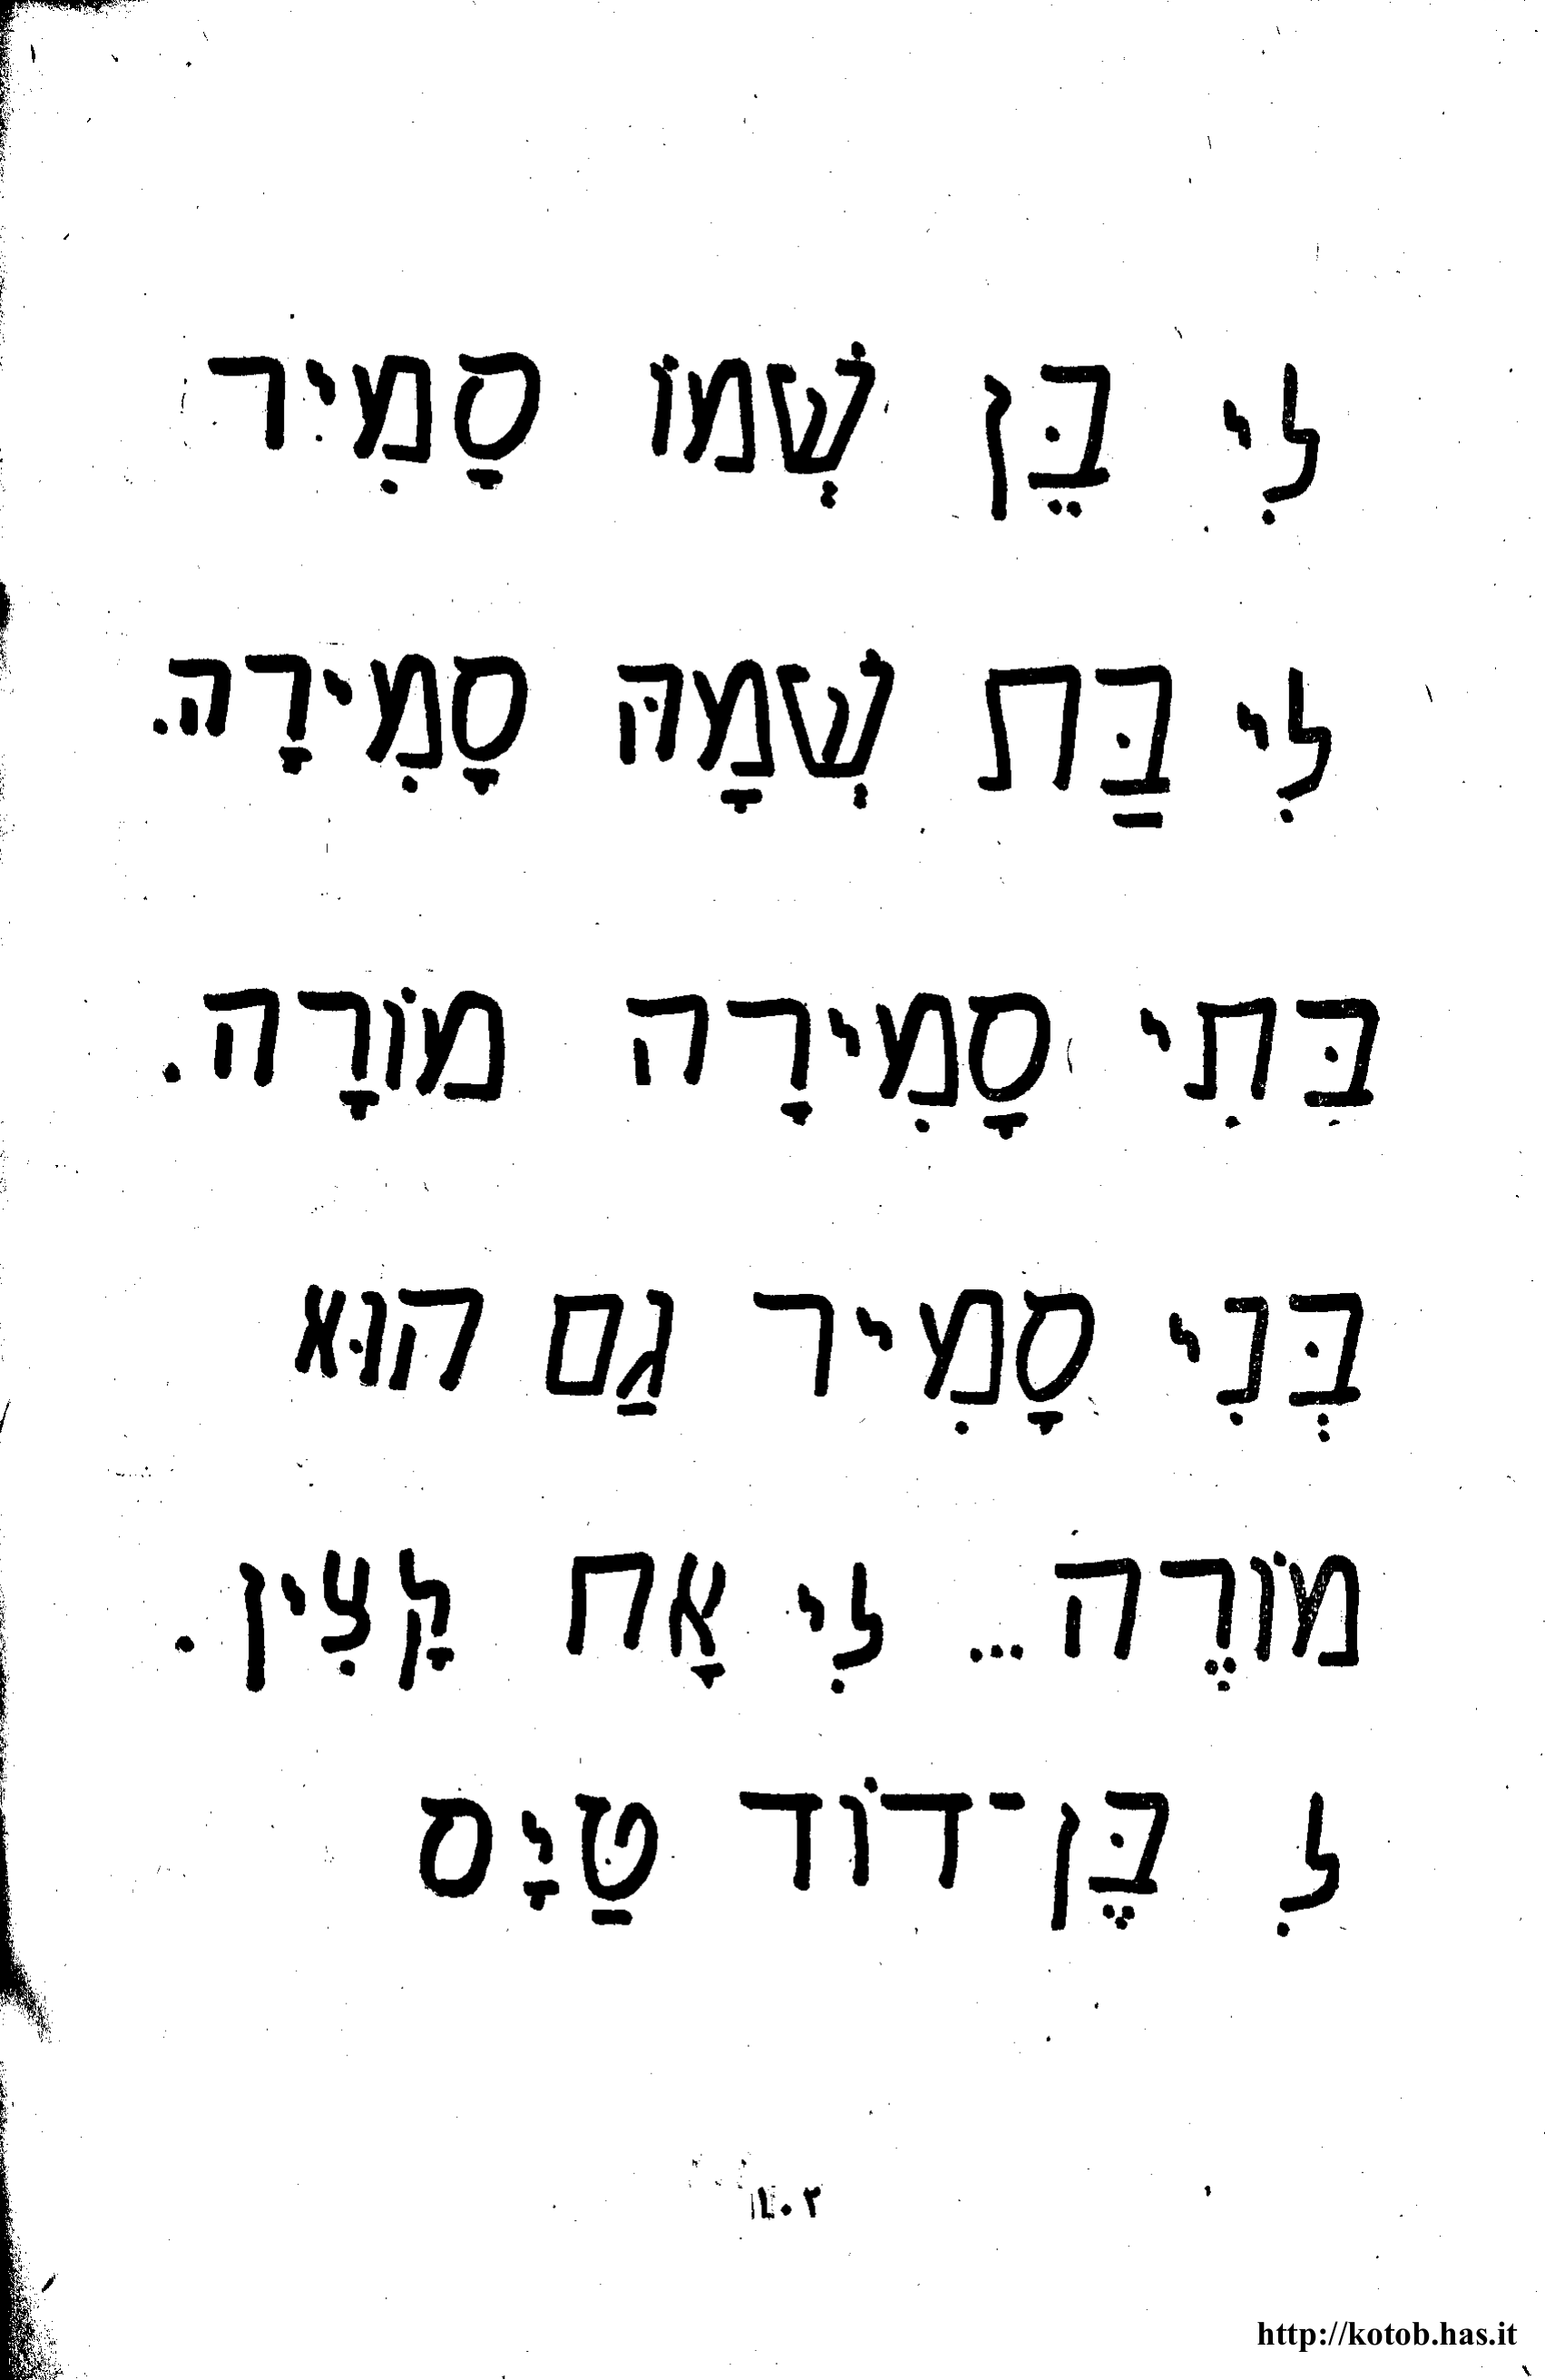 לִי בֵּן שְׁמוֹ סָמִיר
לִי בַּת שְׁמָהּ סָמִירָה.
בִּתִי סָמִירָה מוֹרָה.
בְּנִי סָמִיר גַם הוּא
מוֹרֶה... לִי אָח קָצִין.
לִ בֶּן־דוֹד טַיָס
http://kotob.has.it